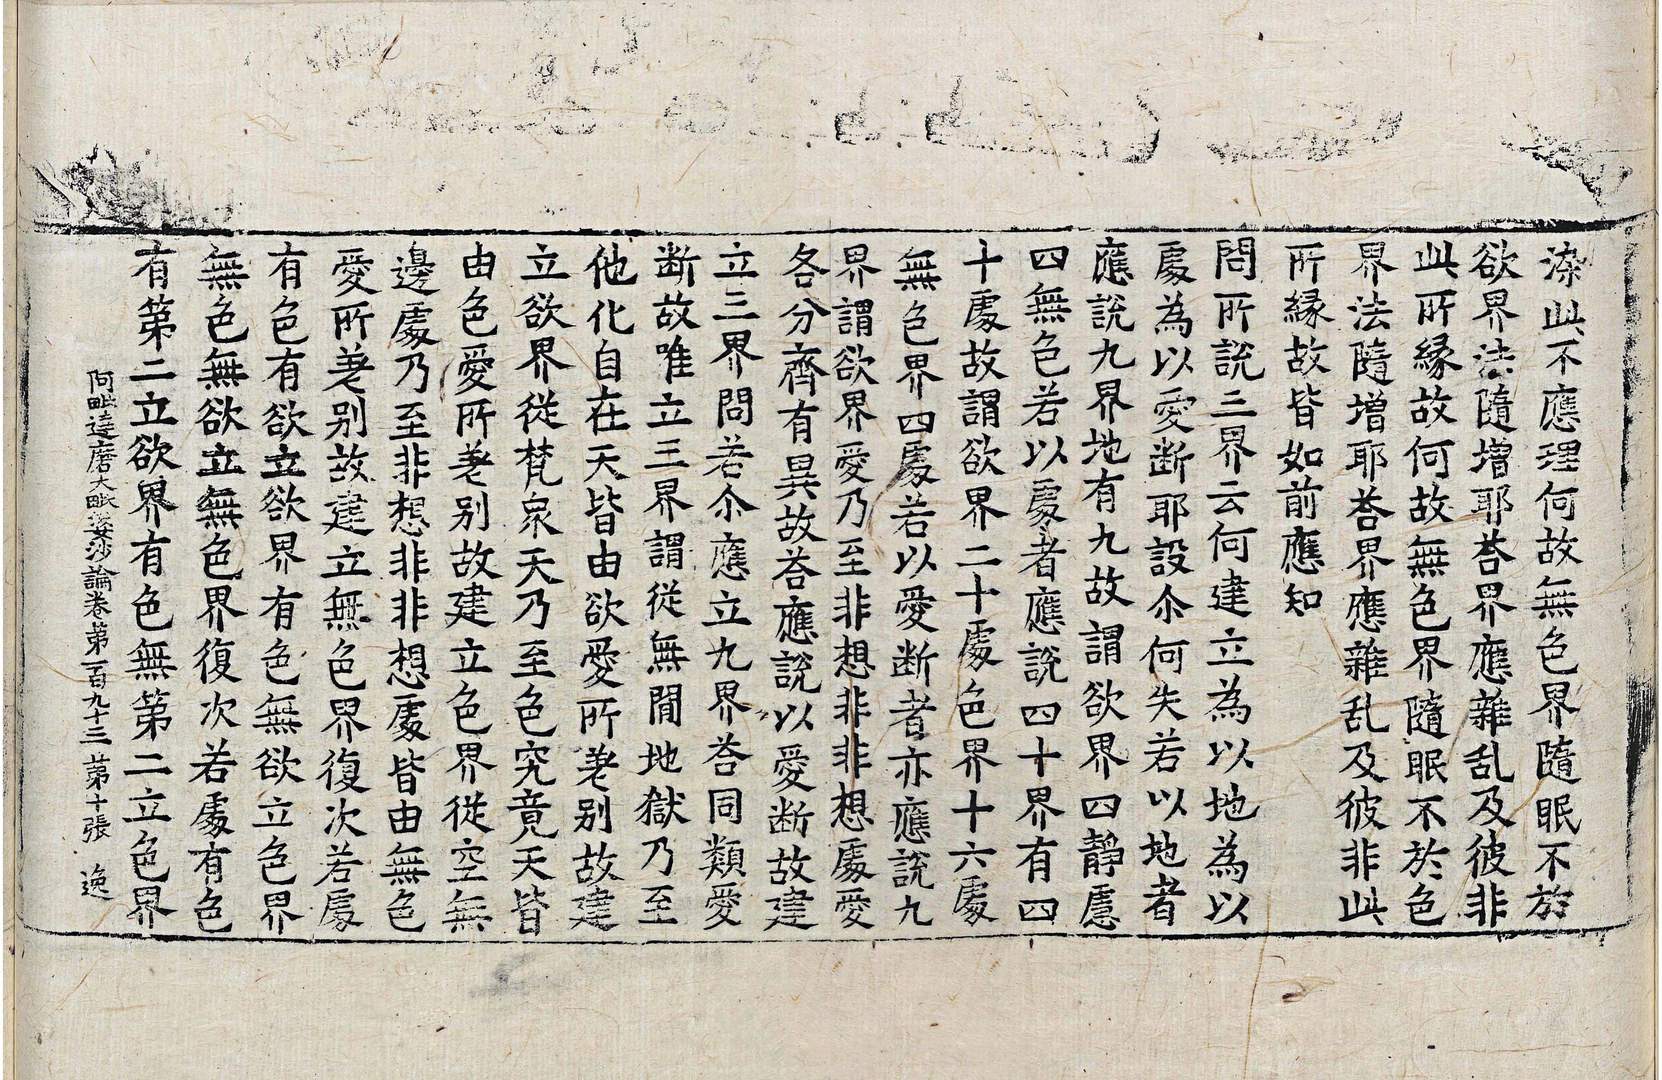 染此不應理何故無色界隨眠不於
欲界法隨增耶荅界應雜乱及彼非
此所縁故何故無色界隨眠不於色
界法隨增耶荅界應雜乱及彼非此
所縁故皆如前應知
問所說三界云何建立為以地為以
處為以愛断耶設尒何失若以地者
應說九界地有九故謂欲界四靜慮
四無色若以處者應說四十界有四
十處故謂欲界二十處色界十六處
無色界四處若以愛断者亦應說九
界謂欲界愛乃至非想非非想處愛
各分齊有異故荅應說以愛断故建
立三界問若尒應立九界荅同類愛
断故唯立三界謂從無閒地獄乃至
他化自在天皆由欲愛所㳄别故建
立欲界從梵泉天乃至色究竟天皆
由色愛所㳄别故建立色界從空無
邊處乃至非想非非想處皆由無色
愛所㳄别故建立無色界復次若處
有色有欲立欲界有色無欲立色界
無色無欲立無色界復次若處有色
有第二立欲界有色無第二立色界
阿毗達磨大毗婆沙論卷第一百九十三 第十張 逸